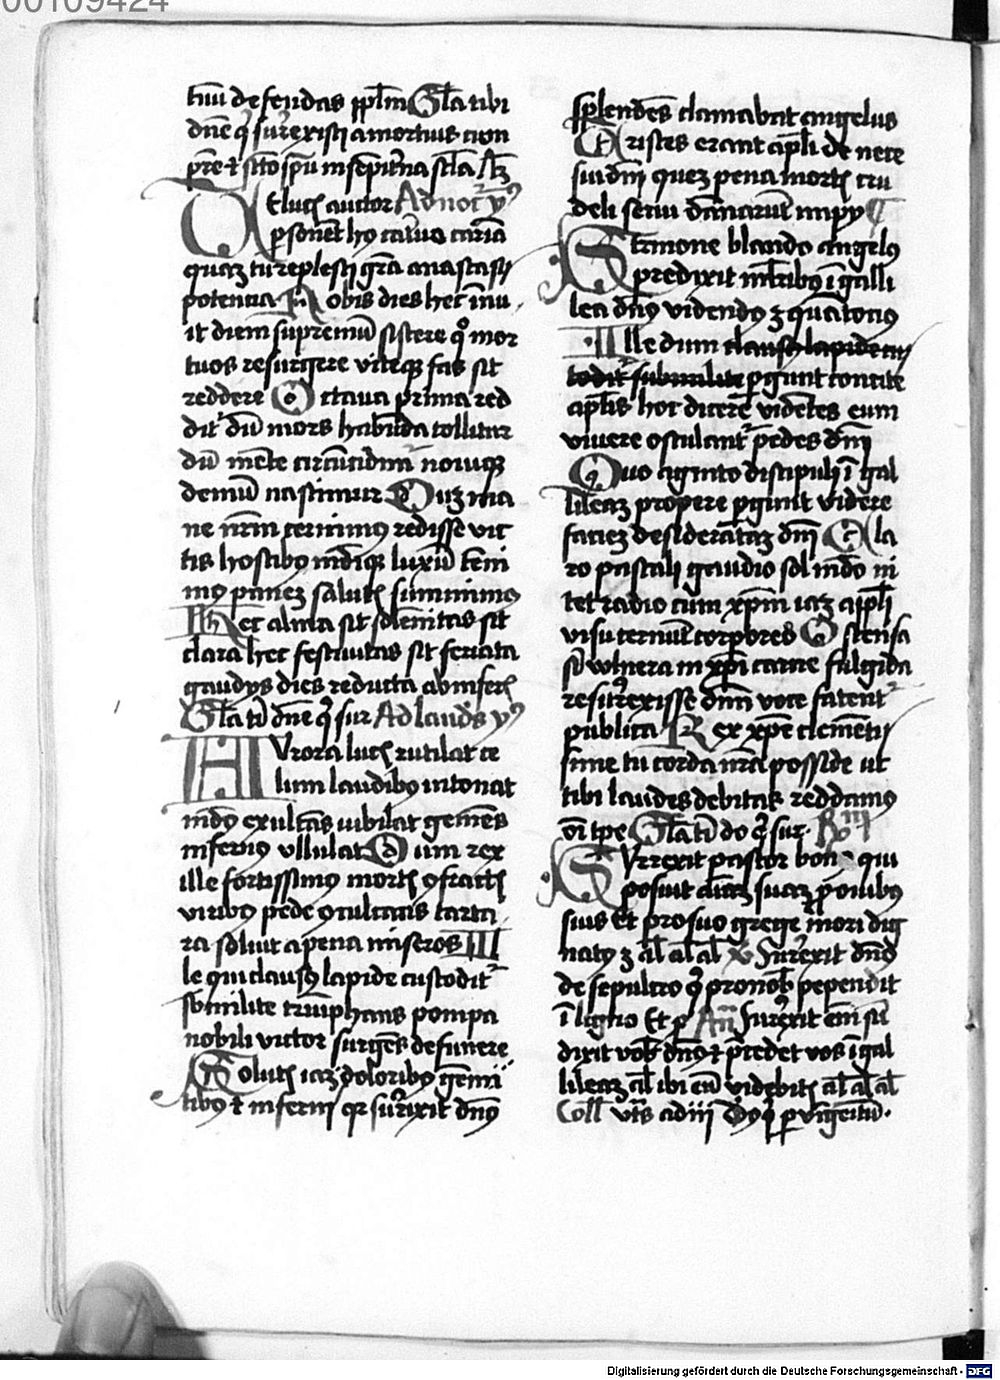 00109424
tuū defendas pplm Gla tibi
dne q̄ surrexisti a mortuis cum
pre ⁊ scto spu in sempit̄na scla Am̄
Te lucis auctor Ad noct̄ ym̄9
psonet h9 cat̄va
quaz tu replesti gra anastasij
potentia Nobis dies hec innu
it diem supremū sistere qo mor
tuos resurgere viteqz fas sit
reddere Octava prima red
dit᷑ dū mors habūda tollitur
dū mēte circūcidim᷑ nouiqz
demū nascimur Cuz ma
ne nr̄m cernimus redisse vic
tis hostibus mūdiqz luxū tēni
mus panez salutis sumimus
Hec alma sit solēnitas sit
clara hec festiuitas sit feriata
gaudijs dies reducta ab inferis
Gla tī dne q̄ sur Ad laudes ym9
AUrora lucis rutilat ce
lum laudibus intonat
mūdus exultās iubilat gemēs
infernus ullulat Cum rex
ille fortissimus mortis ꝯfractis
viribus pede ꝯculcans tarta
ra soluit a pena miseros Ill
le qui clausus lapide custodit᷑
sb milite triūphans pompa
nobili victor surgēs de funere
Solutis iaz doloribus gemi
tibus ⁊ inferni qr surrexit dn̄us
splendēs clamabat angelus
Tristes erant apli de nece
sui dni quez pena mortis cru
deli serui dānarunt impij
Sermone blando angelus
predixit mlieribus ī galli
lea dn̄us videndus ꝫ quātocius
Ille dum clausus lapide cus
todit᷑ sub milite pgunt concite
aplis hoc dicere vidētes eum
viuere osculant᷑ pedes dni
Quo agnito discipuli ī gal
lileaz propere pgunt videre
faciez desideratāz dni Cla
ro pascali gaudio sol mūdo ni
tet radio cum xpm iaz apli
visu cernunt corporeo Ostensa
sī wlnera in xpi carne fulgida
resurrexisse dnm voce fatent᷑
publica Rex xpe clementis
sime tu corda nr̄a posside ut
tibi laudes debitas reddamus
oī tpe Gla tī do q̄ sur. Rm
SUrrexit pastor bon9 qui
posuit aīaz suaz p ouibus
suis Et pro suo grege mori dig
natus ꝫ al al al V Surrexit dn̄us
de sepulcro q̄ pro nob pependit
ī ligno Et p An̄ surrexit em̄ si
dixit vob dn̄us ⁊ predet vos ī gal
lileaz al ibi eū videbitis al al al
Coll
Digitalisierung gefördert durch die Deutsche Forschungsgemeinschaft - DFG